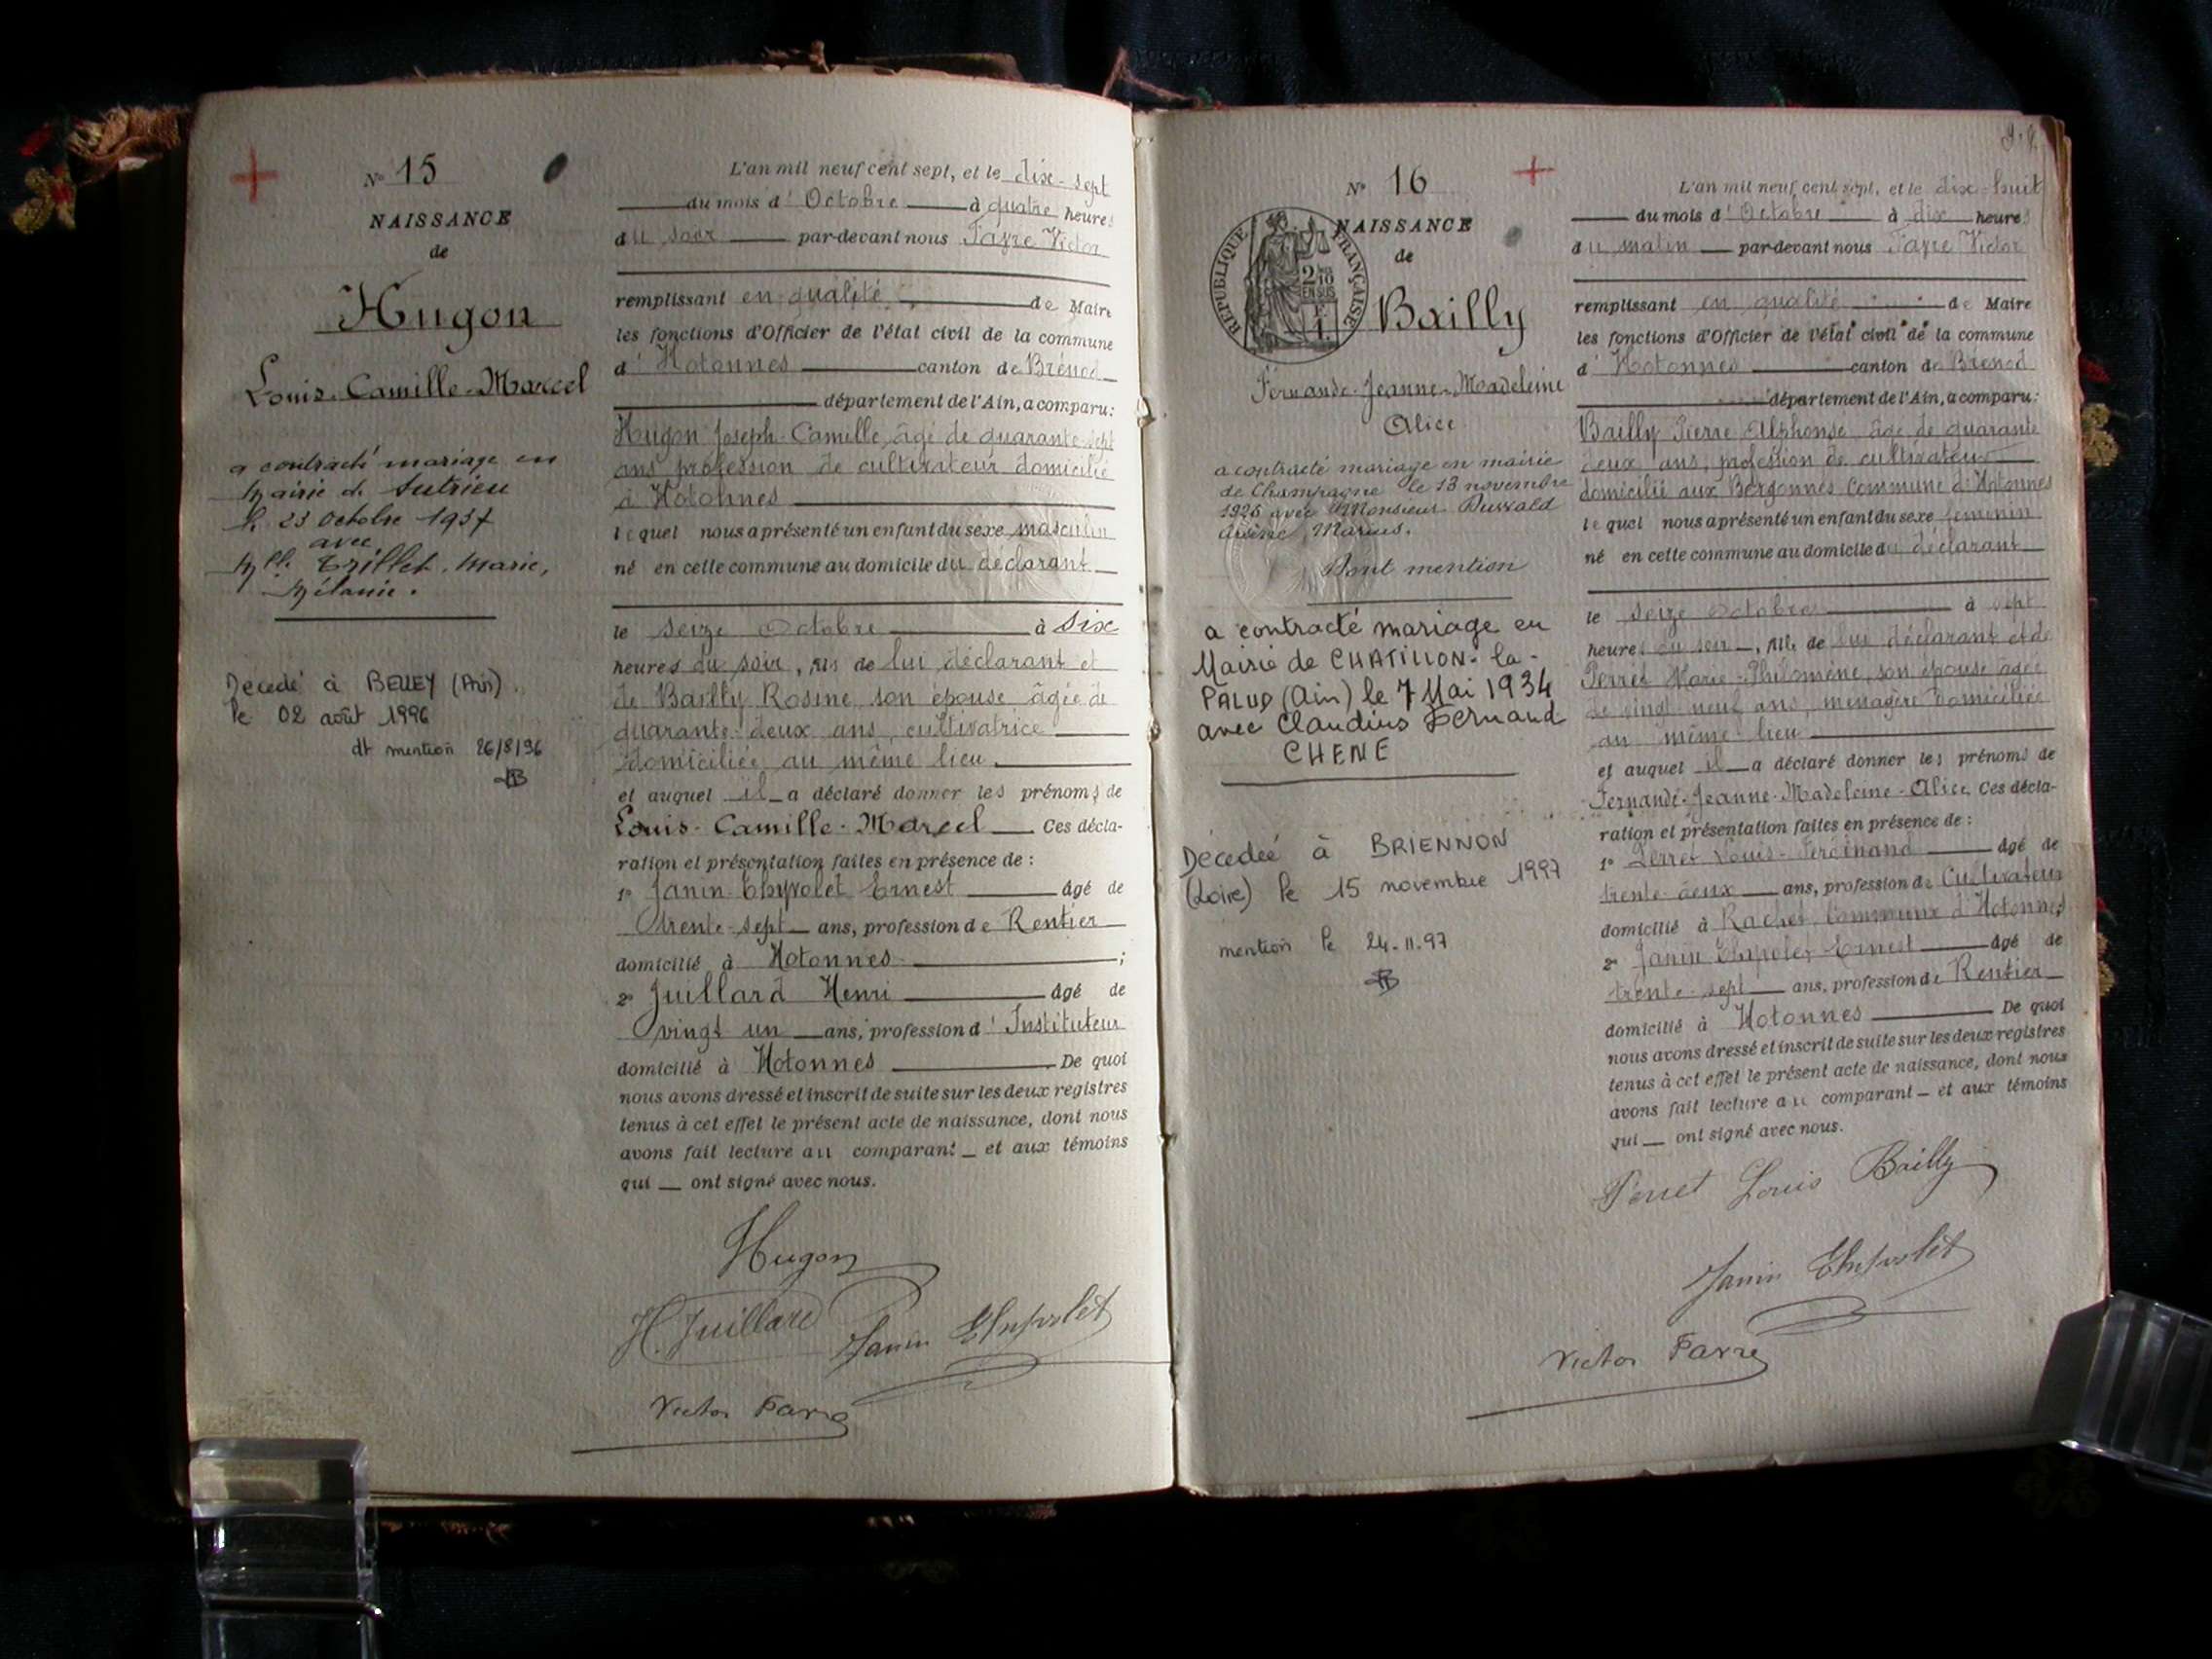 N° 15
NAISSANCE
de
Hugon
Louis-Camille-Marcel
a contracté mariage en
Mairie de Sutrieu
le 23 Octobre 1937
avec
Mlle Trillet, Marie,
Mélanie.
Décédé à BELLEY (Ain)
le 02 août 1996
dt mention 26/8/96
L'an mil neuf cent sept, et le dix-sept
du mois d'Octobre à quatre heures
du soir par-devant nous Favre Victor
remplissant en qualité de Maire
les fonctions d'Officier de l'état civil de la commune
d'Hotonnes canton de Brénod
département de l'Ain, a comparu:
Hugon Joseph-Camille, âgé de quarante-sept
ans profession de cultivateur domicilié
à Hotonnes
lequel nous a présenté un enfant du sexe masculin
né en cette commune au domicile du déclarant
le seize Octobre à six
heures du soir, fils de lui déclarant et
de Bailly Rosine son épouse âgée de
quarante-deux ans, cultivatrice
domiciliée au même lieu.
et auquel il a déclaré donner les prénoms de
Louis-Camille-Marcel Ces décla-
ration et présentation faites en présence de :
1° Janin-Thyvolet Ernest âgé de
trente-sept ans, profession de Rentier
domicilié à Hotonnes ;
2° Juillard Henri âgé de
vingt un ans, profession d'Instituteur
domicilié à Hotonnes De quoi
nous avons dressé et inscrit de suite sur les deux registres
tenus à cet effet le présent acte de naissance, dont nous
avons fait lecture au comparant et aux témoins
qui ont signé avec nous.
Hugon
H. Juillard Janin Thyvolet
Victor Favre
N° 16
NAISSANCE
de
REPUBLIQUE FRANÇAISE
2/10
EN SUS
Bailly
Fernande-Jeanne-Madeleine
Alice
a contracté mariage en mairie
de Champagne le 13 novembre
1926 avec Monsieur
Marius.
Dont mention
a contracté mariage en
Mairie de CHATILLON-la-
PALUD (Ain) le 7 Mai 1934
avec Claudius Fernand
CHENE
Décédée à BRIENNON
(Loire) le 15 novembre 1997
mention le 24.11.97
L'an mil neuf cent sept, et le dix-huit
du mois d'Octobre à dix heures
du matin par-devant nous Favre Victor
remplissant en qualité de Maire
les fonctions d'Officier de l'état civil de la commune
d'Hotonnes canton de Brenod
département de l'Ain, a comparu:
Bailly Pierre Alphonse âgé de quarante
deux ans, profession de cultivateur
domicilié aux Bergonnes Commune d'Hotonnes
lequel nous a présenté un enfant du sexe féminin
né en cette commune au domicile du déclarant
le seize Octobre à sept
heures du soir, fille de lui déclarant et de
Perret Marie-Philomène, son épouse âgée
de vingt neuf ans, ménagère domiciliée
au même lieu
et auquel il a déclaré donner les prénoms de
Fernande-Jeanne-Madeleine-Alice. Ces décla-
ration et présentation faites en présence de :
1° Perret Louis-Ferdinand âgé de
trente deux ans, profession de Cultivateur
domicilié à Rachet Commune d'Hotonnes
2° Janin Ernest âgé de
trente-sept ans, profession de Rentier
domicilié à Hotonnes De quoi
nous avons dressé et inscrit de suite sur les deux registres
tenus à cet effet le présent acte de naissance, dont nous
avons fait lecture au comparant et aux témoins
qui ont signé avec nous.
Perret Louis Bailly
Janin Thyvolet
Victor Favre